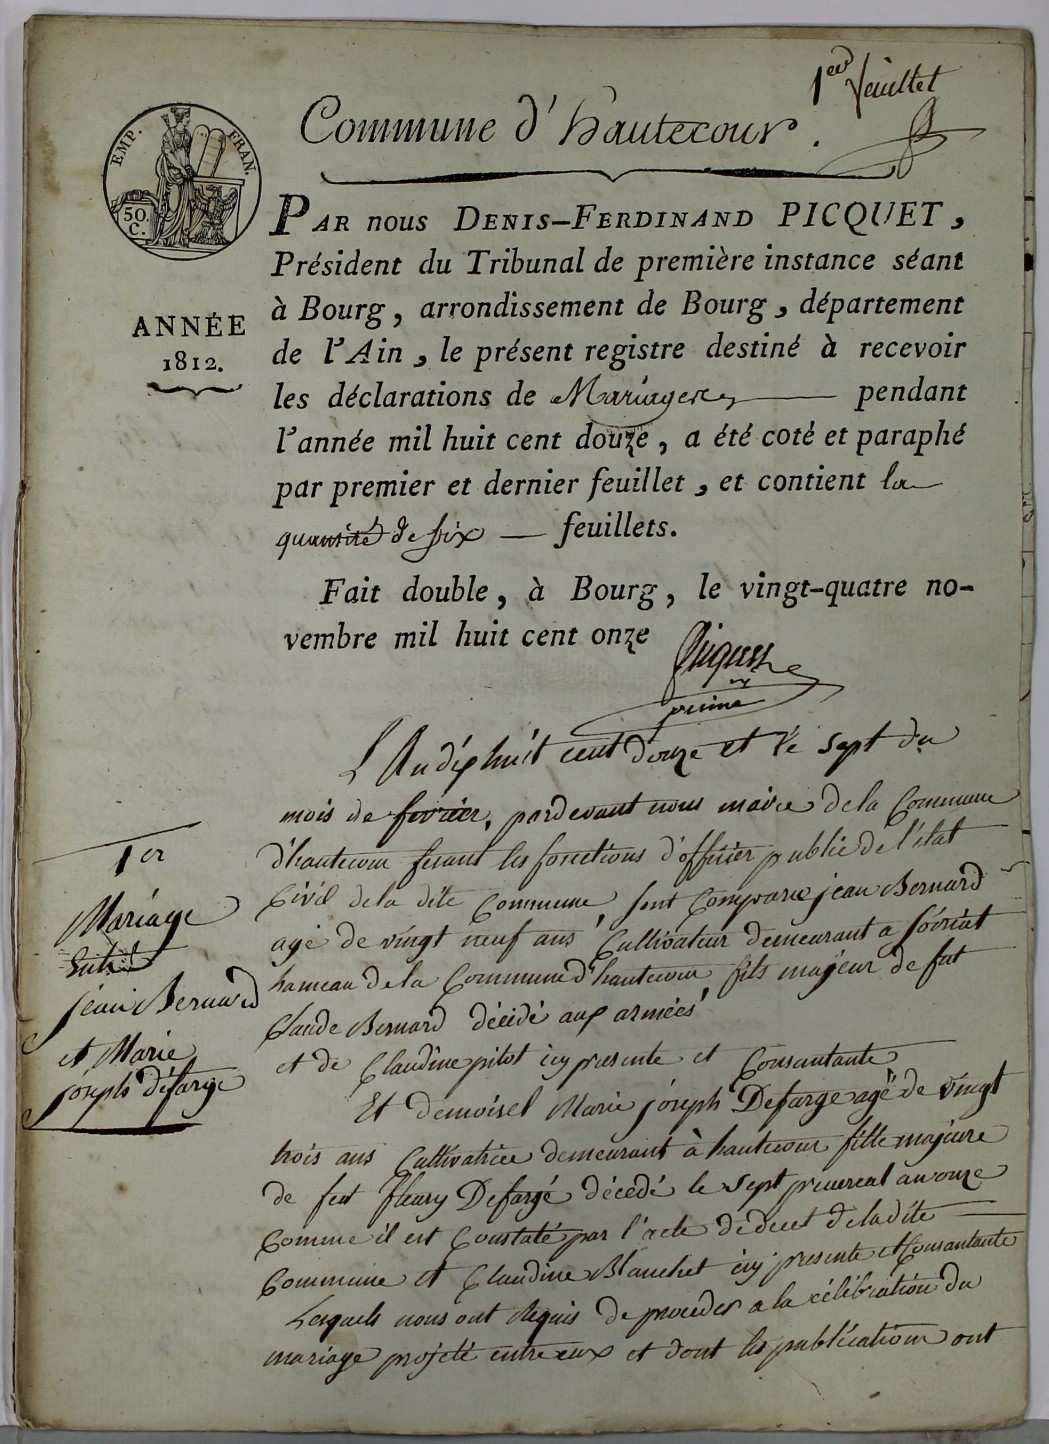 1er feuillet
Commune d'hautecour.
EMP. FRAN.
50. C.
ANNÉE
1812.
PAR nous DENIS-FERDINAND PICQUET,
Président du Tribunal de première instance séant
à Bourg, arrondissement de Bourg, département
de l'Ain, le présent registre destiné à recevoir
les déclarations de Mariages pendant
l'année mil huit cent douze, a été coté et paraphé
par premier et dernier feuillet, et contient la
quantité de six — feuillets.
Fait double, à Bourg, le vingt-quatre no-
vembre mil huit cent onze
Picquet
L'An dix huit cent douze et le sept du
mois de fevrier, pardevant nous maire de la Commune
d'hautecour fesant les fonctions d'officier public de l'état
Civil de la dite Commune, sont Comparus jean Bernard
agé de vingt neuf ans Cultivateur demeurant a
hameau de la Commune d'hautecour fils majeur de fut
Claude Bernard décédé aux armées
et de Claudine pitot icy presente et Consantante
Et demoisel Marie joseph Defarge agée de vingt
trois ans Cultivatrice demeurant à hautecour fille majeure
de feu fleury Defarge décedé le sept prereal an onze
Comme il est Constaté par l'acte de decet de la dite
Commune et Claudine Blanchet icy presente et Consantante
Lesquels nous ont Requis de proceder a la célébration du
mariage projeté entre eux et dont les publications ont
1er
Mariage
Entre
jean Bernard
et Marie
joseph défarge